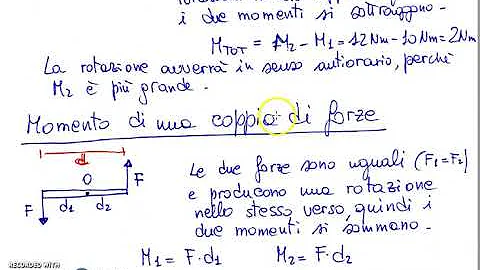 i due momenti si sottraggono.
M_TOT = M2 - M1 = 12Nm - 10Nm = 2Nm
La rotazione avverrà in senso antiorario, perché
M2 è più grande.
Momento di una coppia di forze
d
O
F
F
d1 d2
Le due forze sono uguali (F1=F2)
e producono una rotazione
nello stesso verso, quindi i
due momenti si sommano.
M1 = F·d1 M2 = F·d2
RECORDED WITH